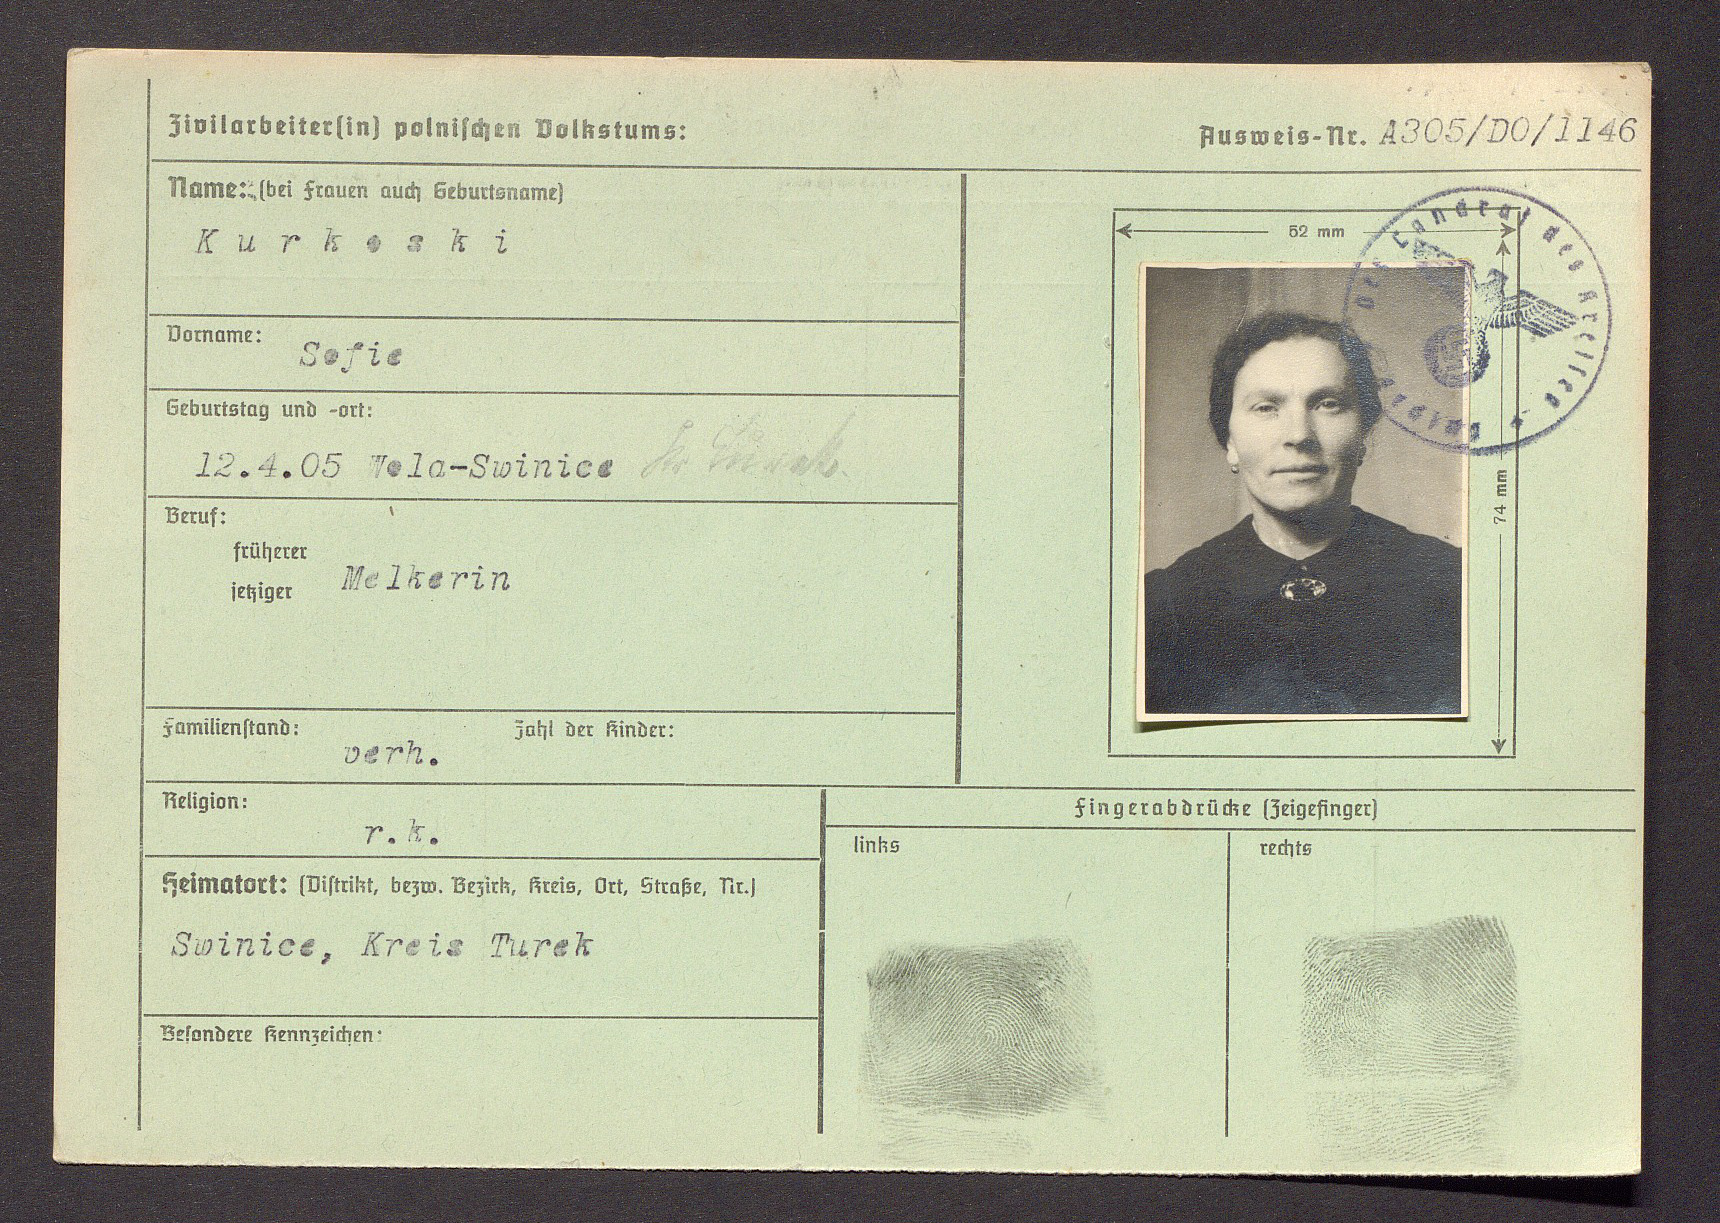 Zivilarbeiter(in) polnischen Volkstums:
Ausweis-Nr. A305/DO/1146
Name: (bei Frauen auch Geburtsname)
Kurkoski
Vorname:
Sofie
Geburtstag und -ort:
12.4.05 Wola-Swinice
Beruf:
früherer
jetziger
Melkerin
Familienstand:
verh.
Zahl der Kinder:
Religion:
r.k.
Heimatort: (Distrikt, bezw. Bezirk, Kreis, Ort, Straße, Nr.)
Swinice, Kreis Turek
Besondere Kennzeichen:
52 mm
74 mm
Der Landrat des Kreises
Fingerabdrücke (Zeigefinger)
links
rechts